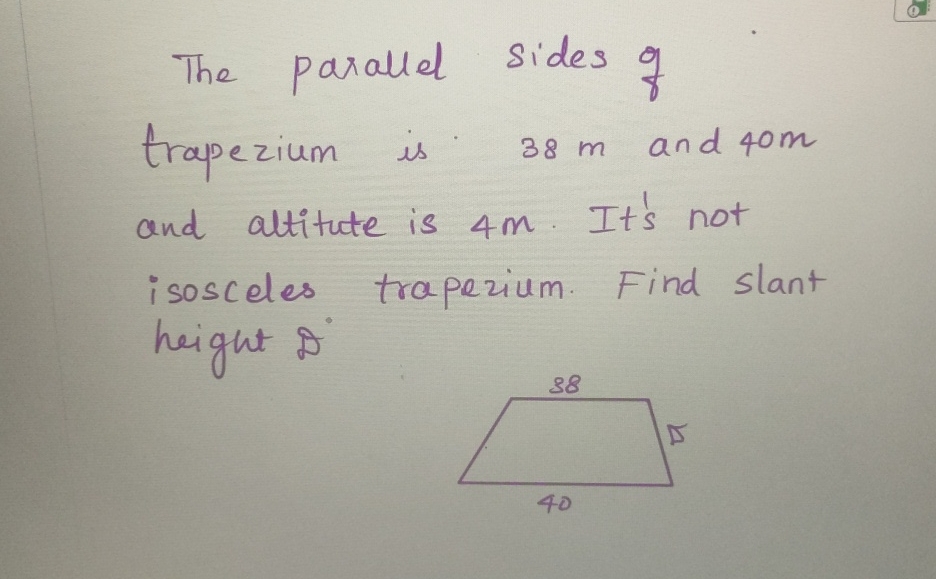 The parallel sides of
trapezium is 38 m and 40m
and altitute is 4m. It's not
isosceles trapezium. Find slant
height D
38
D
40